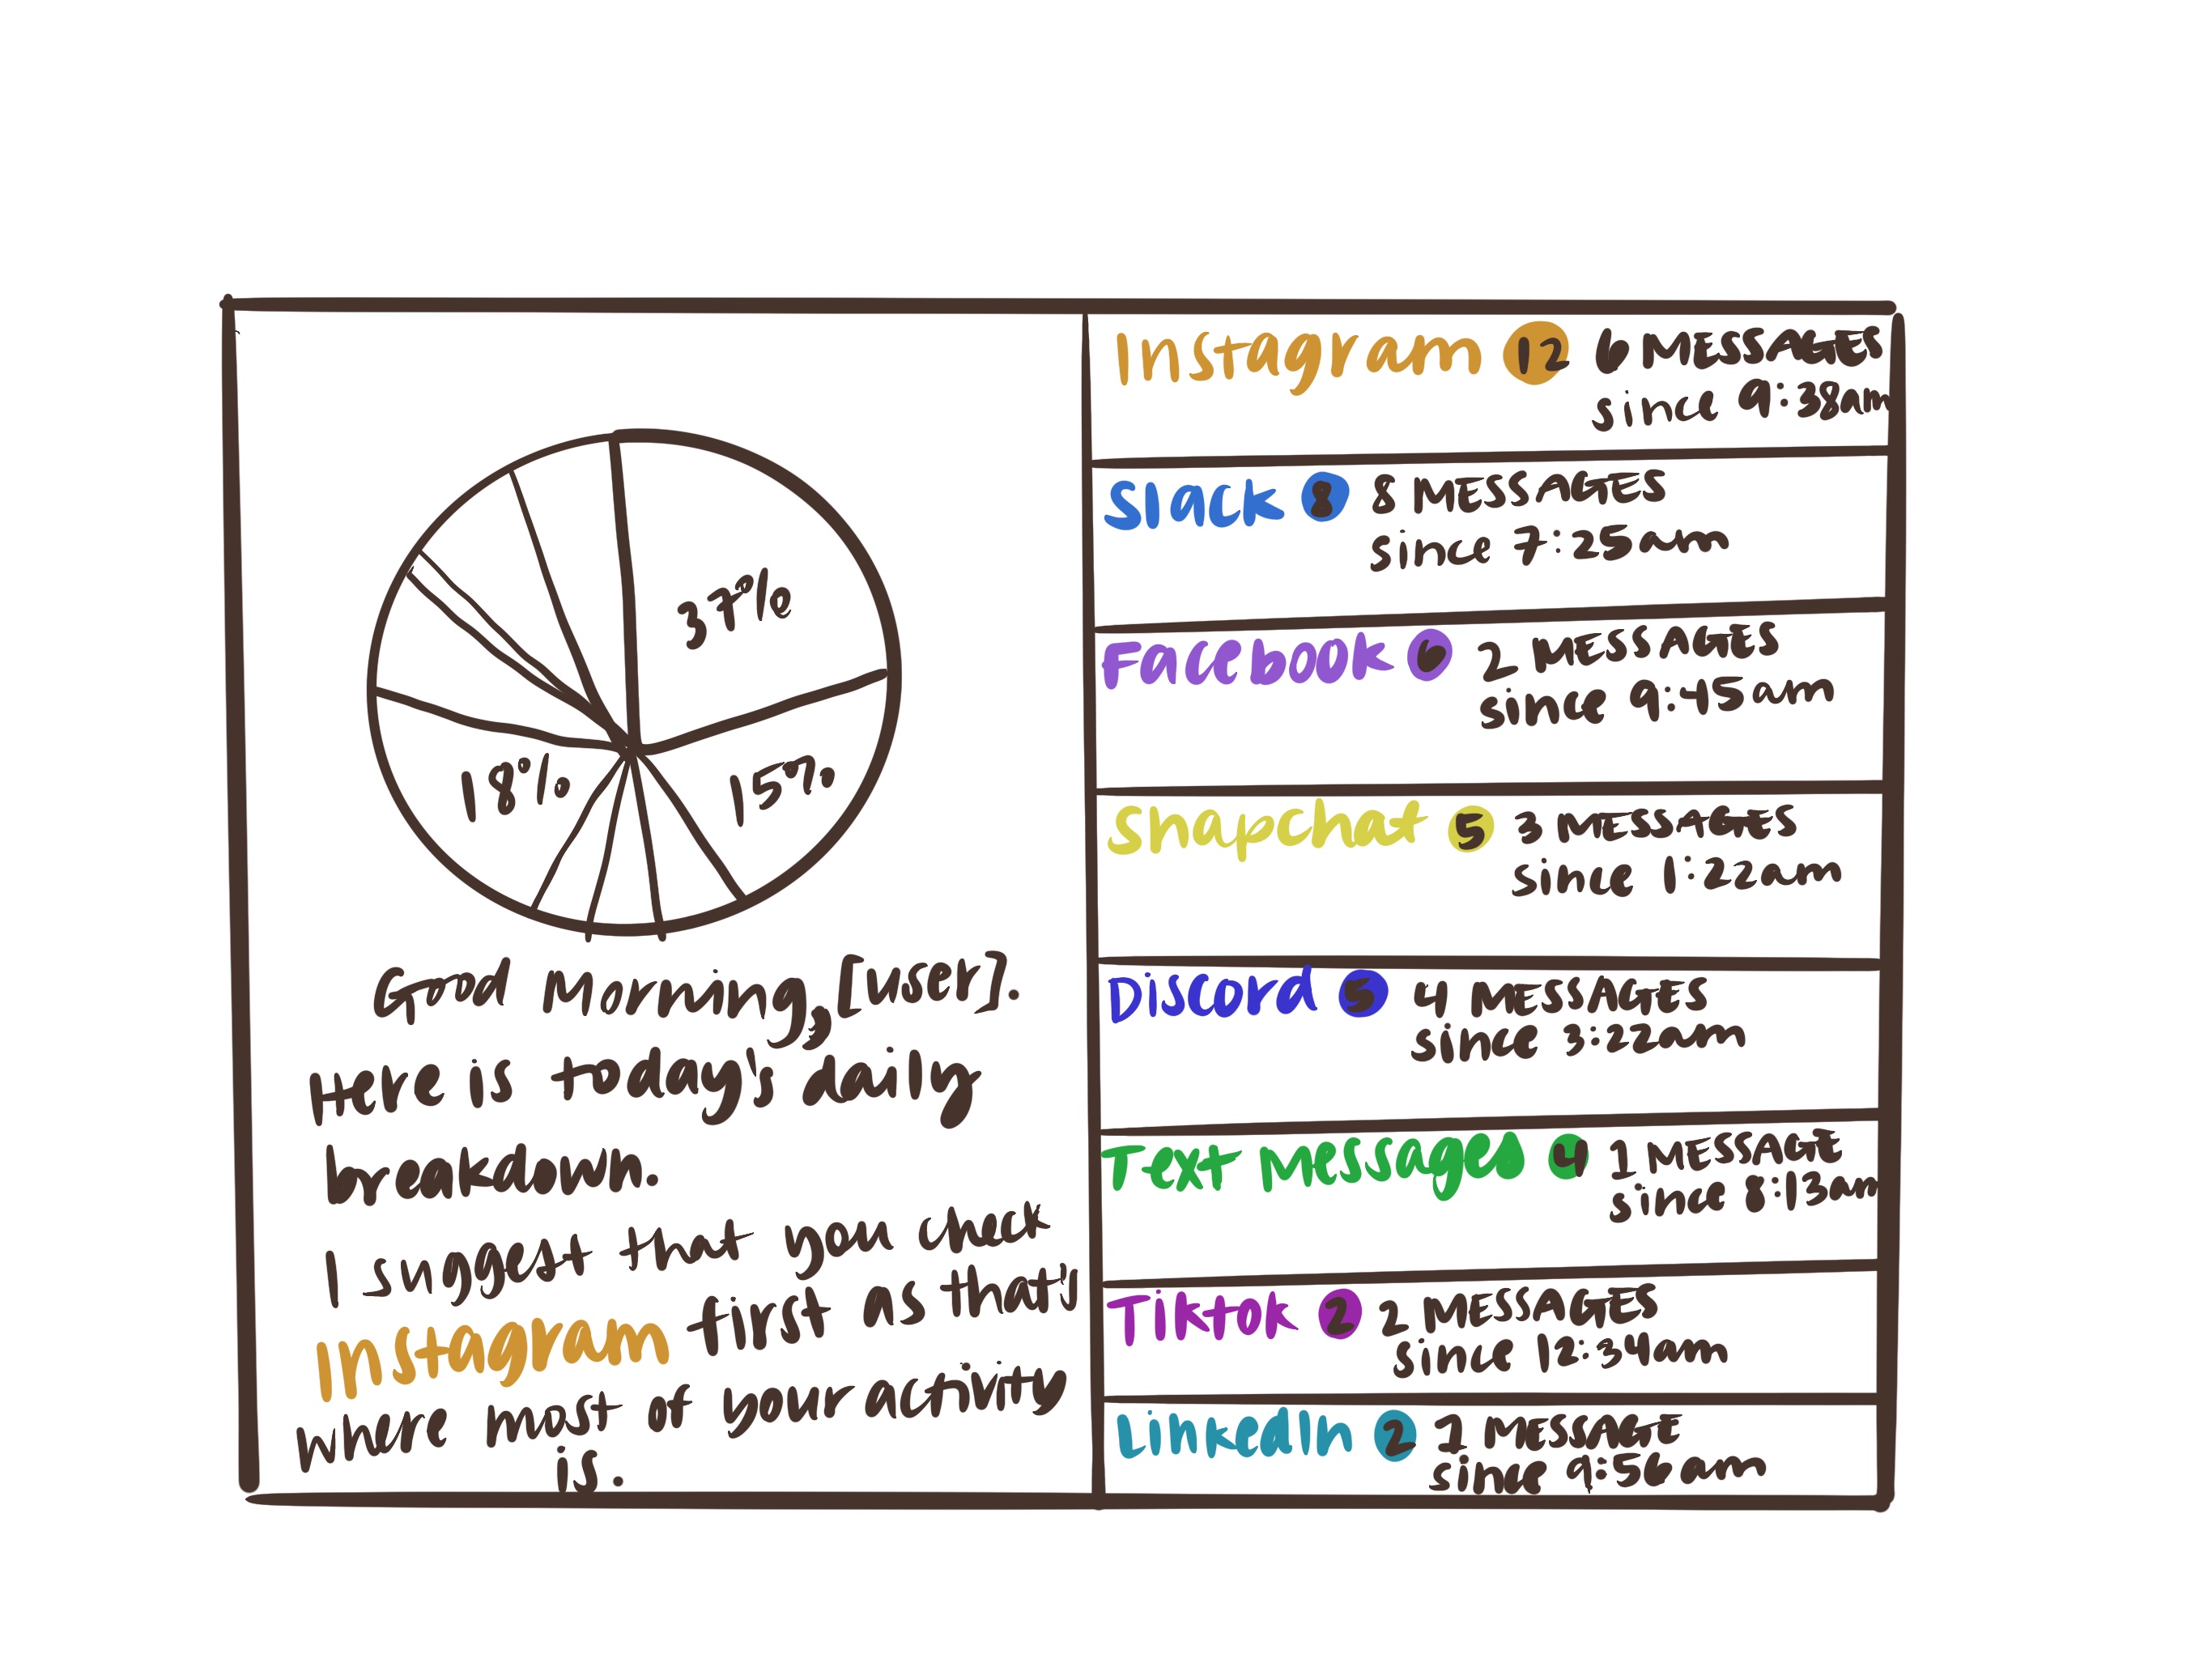 37%
15%
18%
Good Morning, [user].
Here is today's daily
breakdown.
I suggest that you check
Instagram first as that's
where most of your activity
is.
Instagram 12 6 MESSAGES
since 9:38am
Slack 8 8 MESSAGES
since 7:25am
Facebook 6 2 MESSAGES
since 9:45am
Snapchat 5 3 MESSAGES
since 1:22am
Discord 5 4 MESSAGES
since 3:22am
Text Messages 4 1 MESSAGE
since 8:13am
Tiktok 2 2 MESSAGES
since 12:34am
LinkedIn 2 1 MESSAGE
since 9:56am